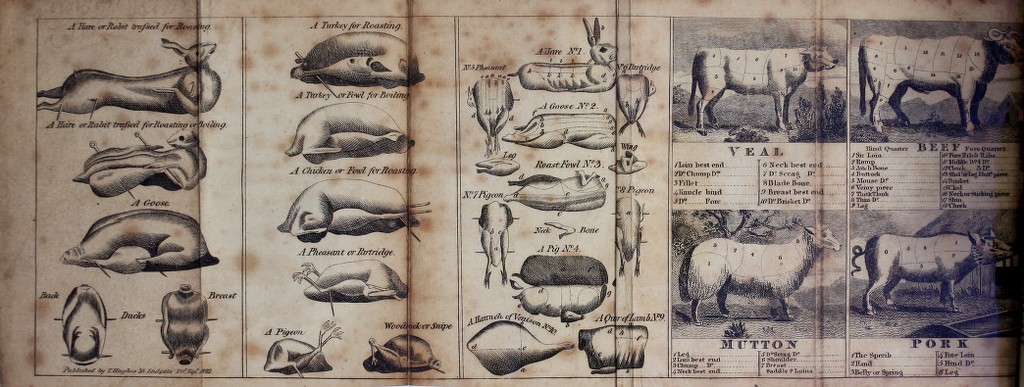 A Hare or Rabit trussed for Roasting.
A Hare or Rabit trussed for Roasting or Boiling.
A Goose.
Back
Ducks
Breast
Published by T. Hughes
A Turkey for Roasting.
A Turkey or Fowl for Boiling
A Chicken or Fowl for Roasting
A Pheasant or Patridge
A Pigeon
Woodcock or Snipe
A Hare No.1.
No.5 Pheasant
No.6 Partridge
A Goose No.2.
Leg
Wing
Roast Fowl No.3.
No.7 Pigeon
No.8 Pigeon
Neck
Bone
A Pig No.4.
A Haunch of Venison No.10.
A Qur of Lamb No.9
VEAL
1 Loin best end
2 Do Chump Do
3 Fillet
4 Knuckle hind
5 Do Fore
6 Neck best end
7 Do Scrag Do
8 Blade Bone
9 Breast best end
10 Do Brisket Do
BEEF
Hind Quarter
Fore Quarter
1 Sir Loin
2 Rump
4 Buttock
5 Mouse Do
6 Veiny piece
7 Thick Flank
8 Thin Do
9 Leg
10 Fore Rib 5 Ribs
14 Brisket
15 Clod
17 Shin
18 Cheek
MUTTON
1 Leg
2 Loin best end
3 Chump Do
4 Neck best end
5 Do Scrag Do
6 Shoulder
7 Breast
Saddle 2 Loins
PORK
1 The Sperib
2 Hand
3 Belly or Spring
4 Fore Loin
5 Hind Do
6 Leg